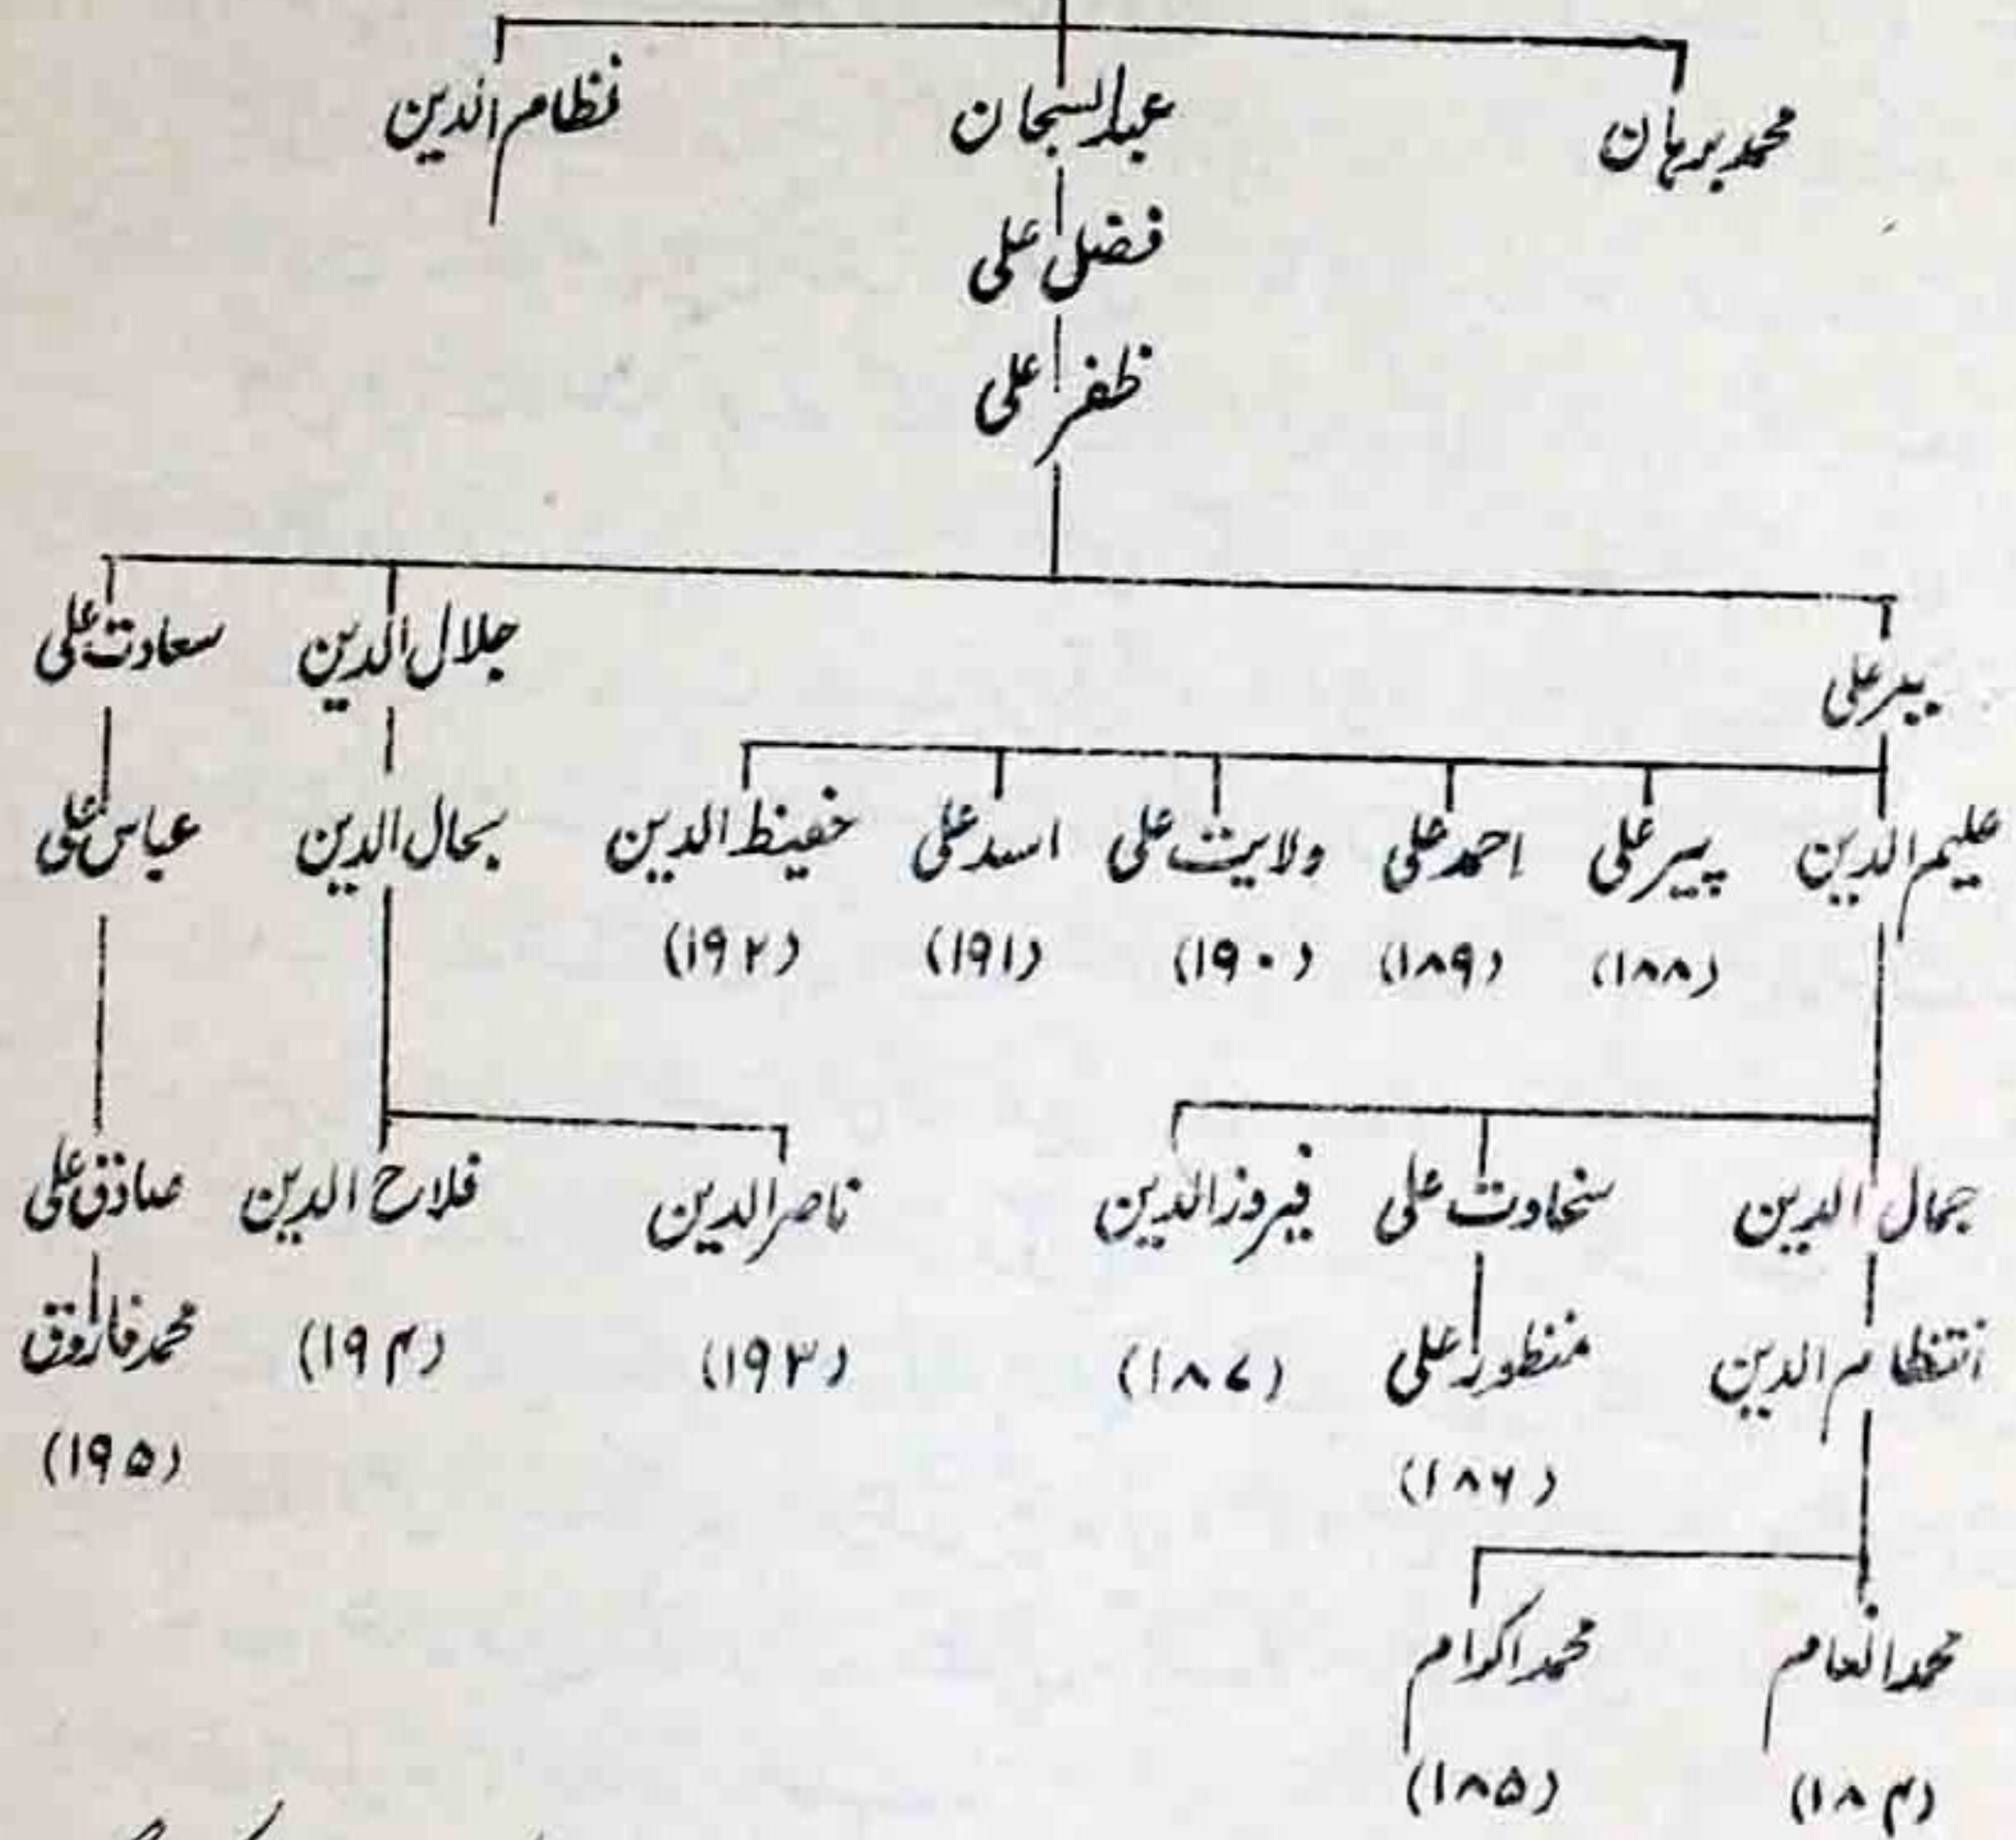 محمد برہان عبدالسبحان نظام الدین
فضل علی
ظفر علی
ببر علی جلال الدین سعادت علی
علیم الدین پیر علی احمد علی ولایت علی اسد علی حفیظ الدین بحال الدین عباس علی
(۱۸۸) (۱۸۹) (۱۹۰) (۱۹۱) (۱۹۲)
جمال الدین سخاوت علی فیروز الدین ناصر الدین فلاح الدین صادق علی
انتظام الدین منظور علی (۱۸۷) (۱۹۳) (۱۹۴) محمد فاروق
(۱۸۶) (۱۹۵)
محمد انعام محمد اکرام
(۱۸۴) (۱۸۵)